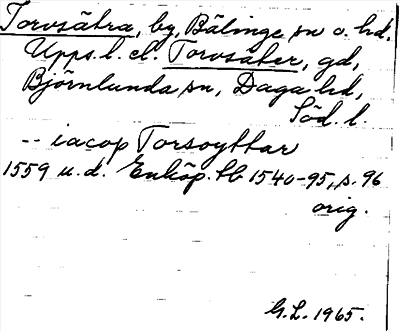 Torvsätra, by, Bälinge sn o. hd.
Upps. l. el. Torvsäter, gd,
Björnlunda sn, Daga hd,
Söd. l.
-- iacop Torsoyttar
1559 u.d. Enköp. tb 1540-95, s. 96
orig.
G.L. 1965.